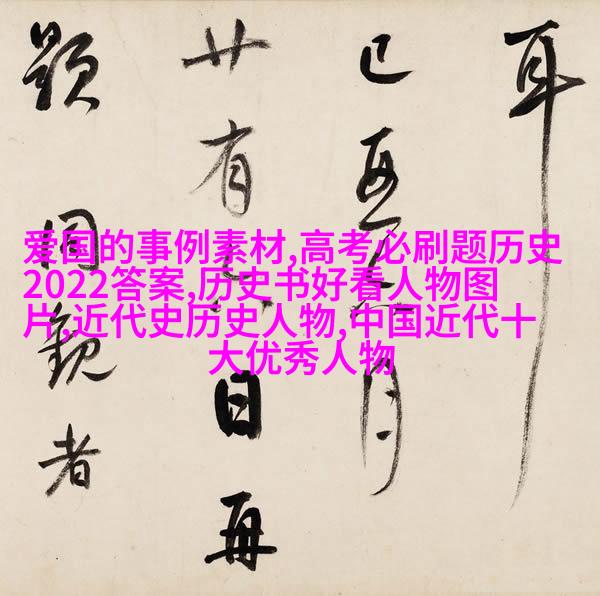 耳
已月
廿有日再
題同觀者
爱国的事例素材,高考必刷题历史
2022答案,历史书好看人物图
片,近代史历史人物,中国近代十
大优秀人物